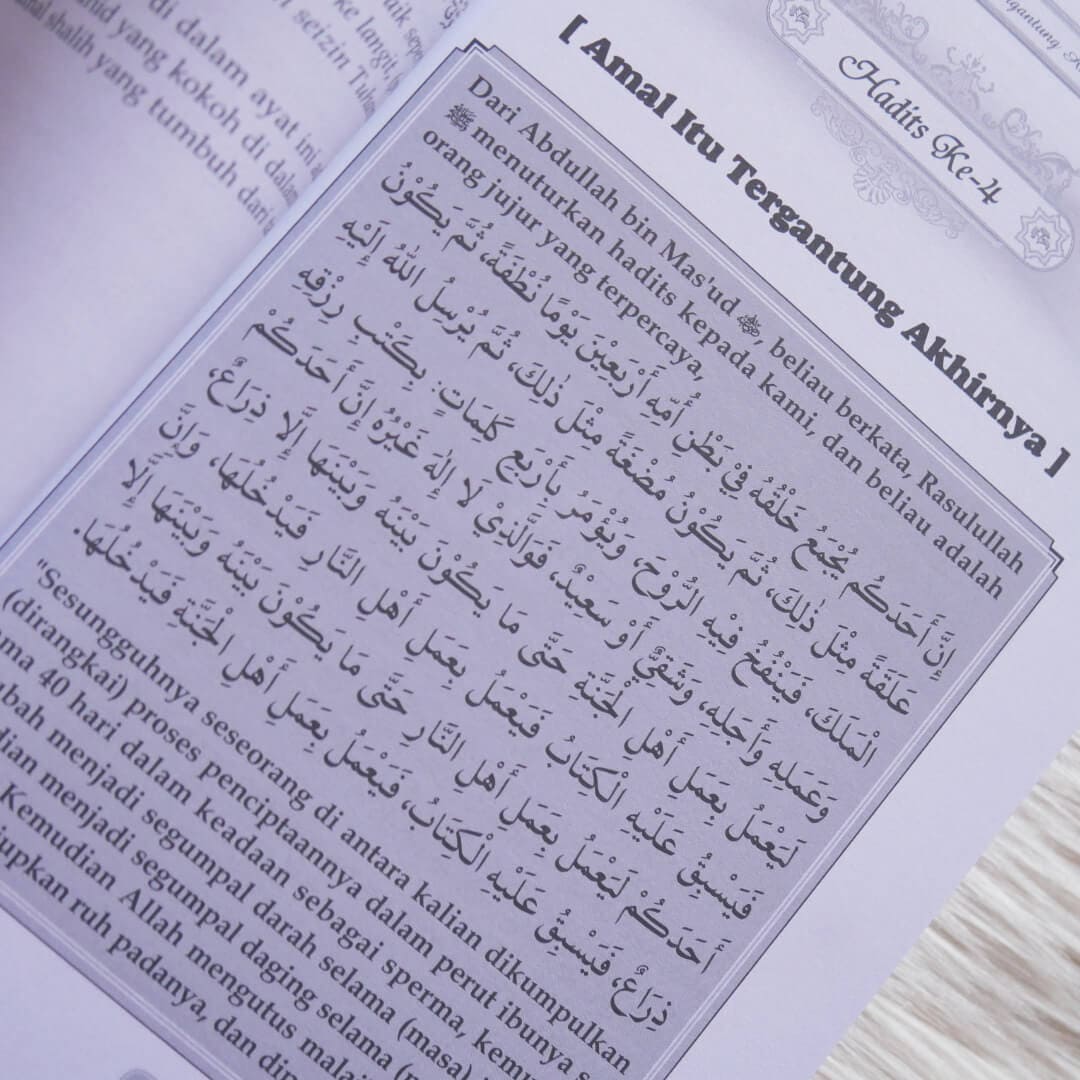 ke langit,
seizin
di dalam ayat ini
yang kokoh di
shalih yang tumbuh
Hadits Ke-4
[ Amal Itu Tergantung Akhirnya ]
Dari Abdullah bin Mas'ud ﷺ, beliau berkata, Rasulullah
ﷺ menuturkan hadits kepada kami, dan beliau adalah
orang jujur yang terpercaya,
إِنَّ أَحَدَكُم يُجْمَعُ خَلْقُهُ فِيْ بَطْنِ أُمِّهِ أَرْبَعِيْنَ يَوْمًا نُطْفَةً، ثُمَّ يَكُوْنُ
عَلَقَةً مِثْلَ ذٰلِكَ، ثُمَّ يَكُوْنُ مُضْغَةً مِثْلَ ذٰلِكَ، ثُمَّ يُرْسِلُ اللهُ إِلَيْهِ
الْمَلَكَ، فَيَنْفُخُ فِيْهِ الرُّوْحَ، وَيُؤْمَرُ بِأَرْبَعِ كَلِمَاتٍ: بِكَتْبِ رِزْقِهِ
وَعَمَلِهِ وَأَجَلِهِ، وَشَقِيٌّ أَوْ سَعِيْدٌ، فَوَالَّذِيْ لَا إِلٰهَ غَيْرُهُ إِنَّ أَحَدَكُمْ
لَيَعْمَلُ بِعَمَلِ أَهْلِ الْجَنَّةِ حَتَّى مَا يَكُوْنَ بَيْنَهُ وَبَيْنَهَا إِلَّا ذِرَاعٌ،
فَيَسْبِقُ عَلَيْهِ الْكِتَابُ فَيَعْمَلُ بِعَمَلِ أَهْلِ النَّارِ فَيَدْخُلُهَا، وَإِنَّ
أَحَدَكُمْ لَيَعْمَلُ بِعَمَلِ أَهْلِ النَّارِ حَتَّى مَا يَكُوْنَ بَيْنَهُ وَبَيْنَهَا إِلَّا
ذِرَاعٌ، فَيَسْبِقُ عَلَيْهِ الْكِتَابُ، فَيَعْمَلُ بِعَمَلِ أَهْلِ الْجَنَّةِ فَيَدْخُلُهَا.
"Sesungguhnya seseorang di antara kalian dikumpulkan
(dirangkai) proses penciptannya dalam perut ibunya
40 hari dalam keadaan sebagai sperma,
menjadi segumpal darah selama (masa)
menjadi segumpal daging selama
Kemudian Allah mengutus
ruh padanya, dan